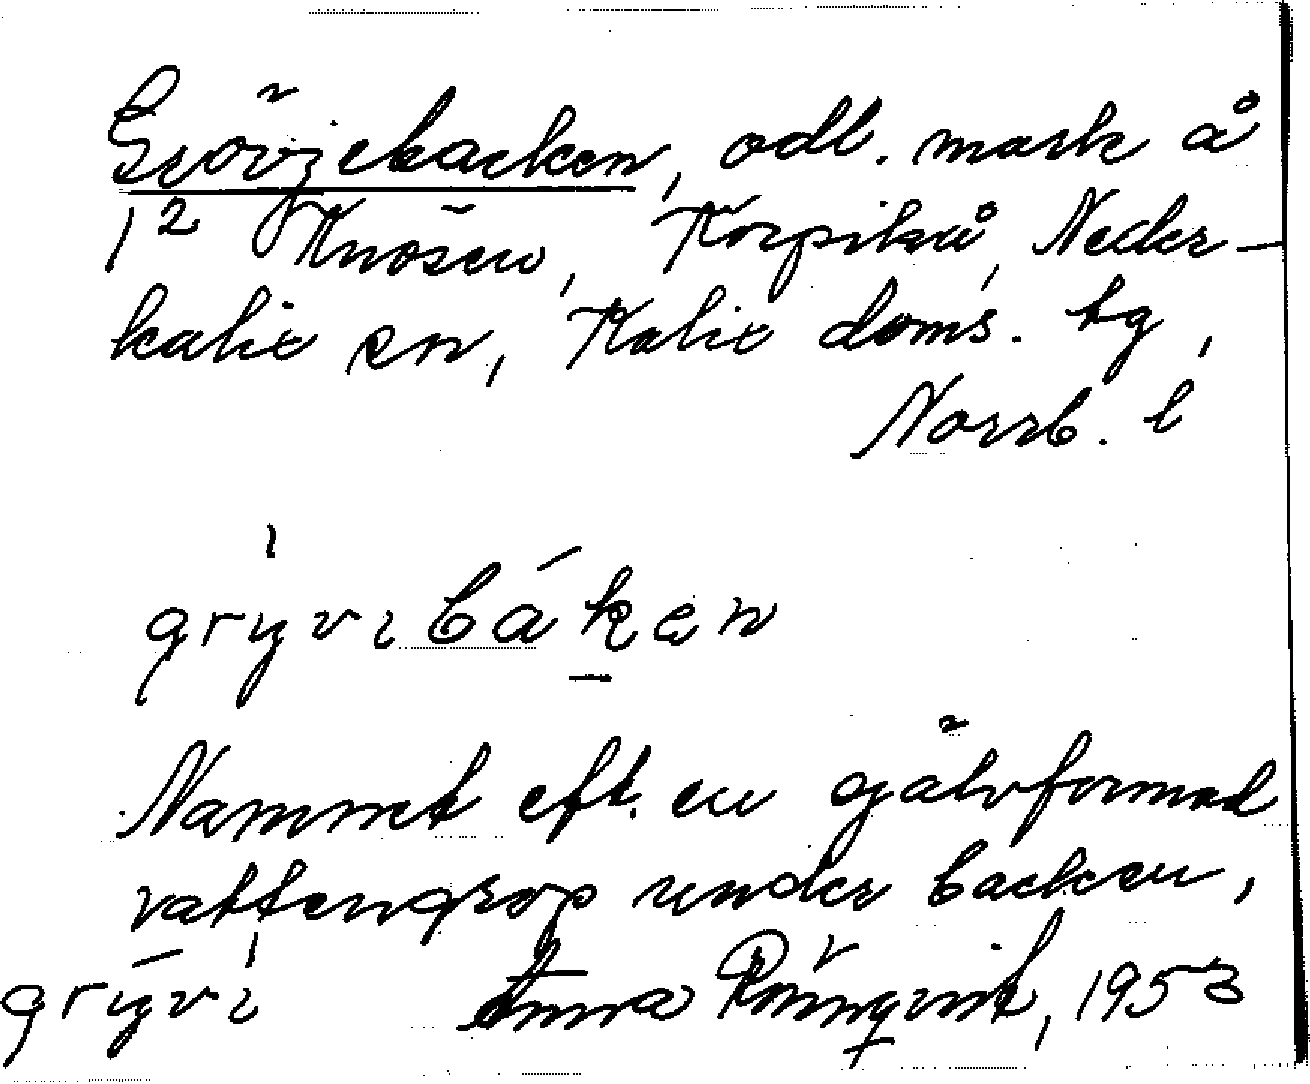 Grövjebacken, odl. mark å
1² Knösen, Korpikå, Neder-
kalix sn, Kalix doms. tg,
Norrb. l
gryvibáken
Namnet eft. en grytformad
vattengrop under backen,
gryvi Anna Rönnqvist, 1953